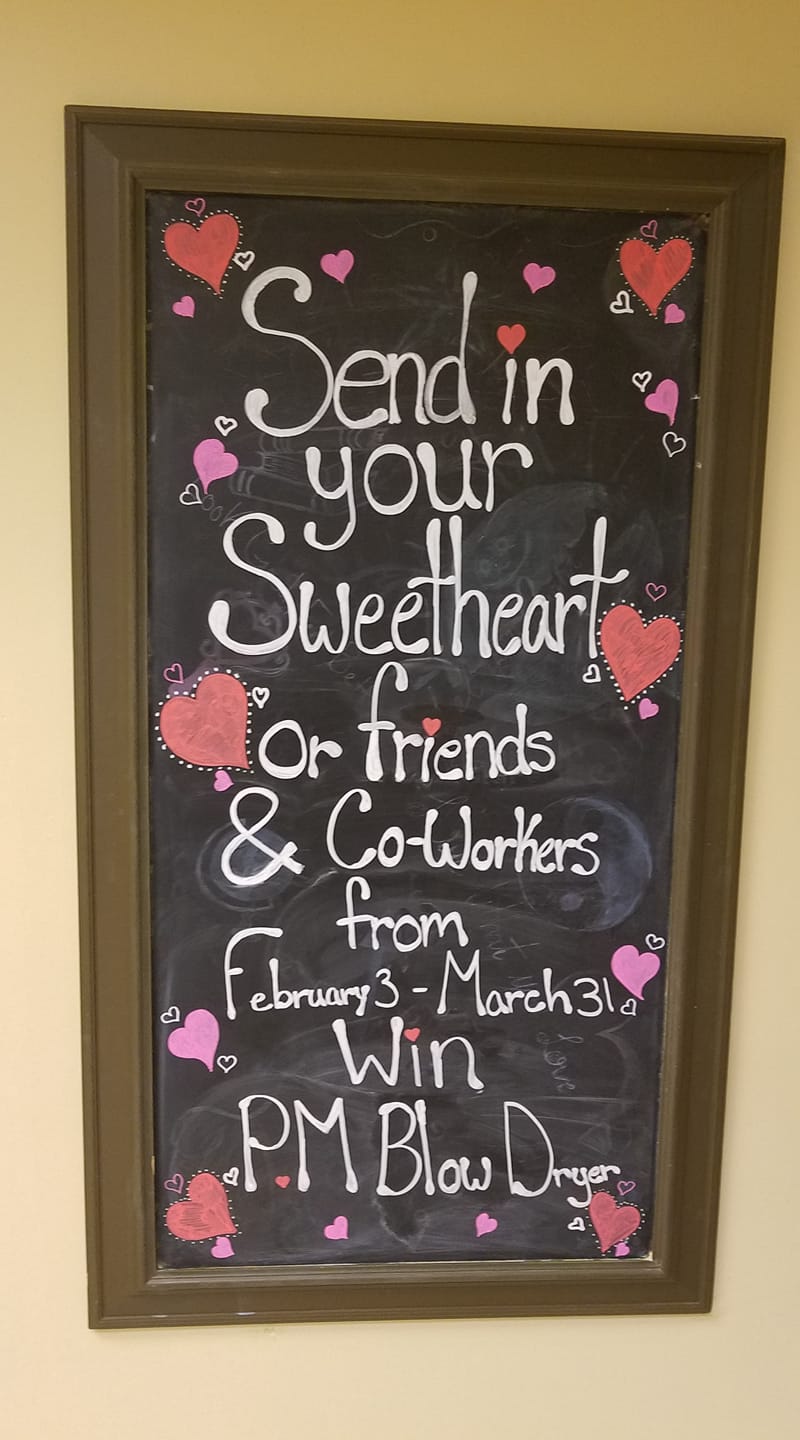 Send in
your
Sweetheart
or friends
& Co-Workers
from
February 3 - March 31
Win
P.M Blow Dryer
Love